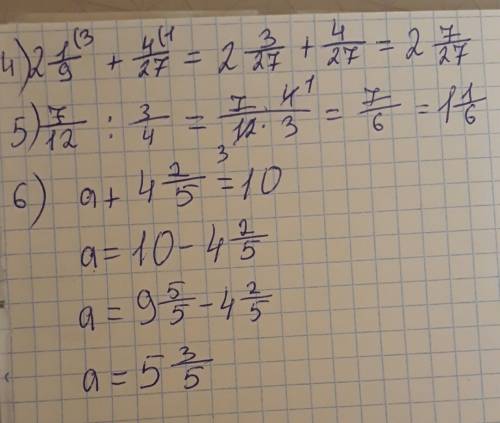 4) 2 1/9 (3 + 4/27 (1 = 2 3/27 + 4/27 = 2 7/27
5) 7/12 : 3/4 = 7·4 1/12·3 3 = 7/6 = 1 1/6
6) a + 4 2/5 = 10
a = 10 - 4 2/5
a = 9 5/5 - 4 2/5
a = 5 3/5